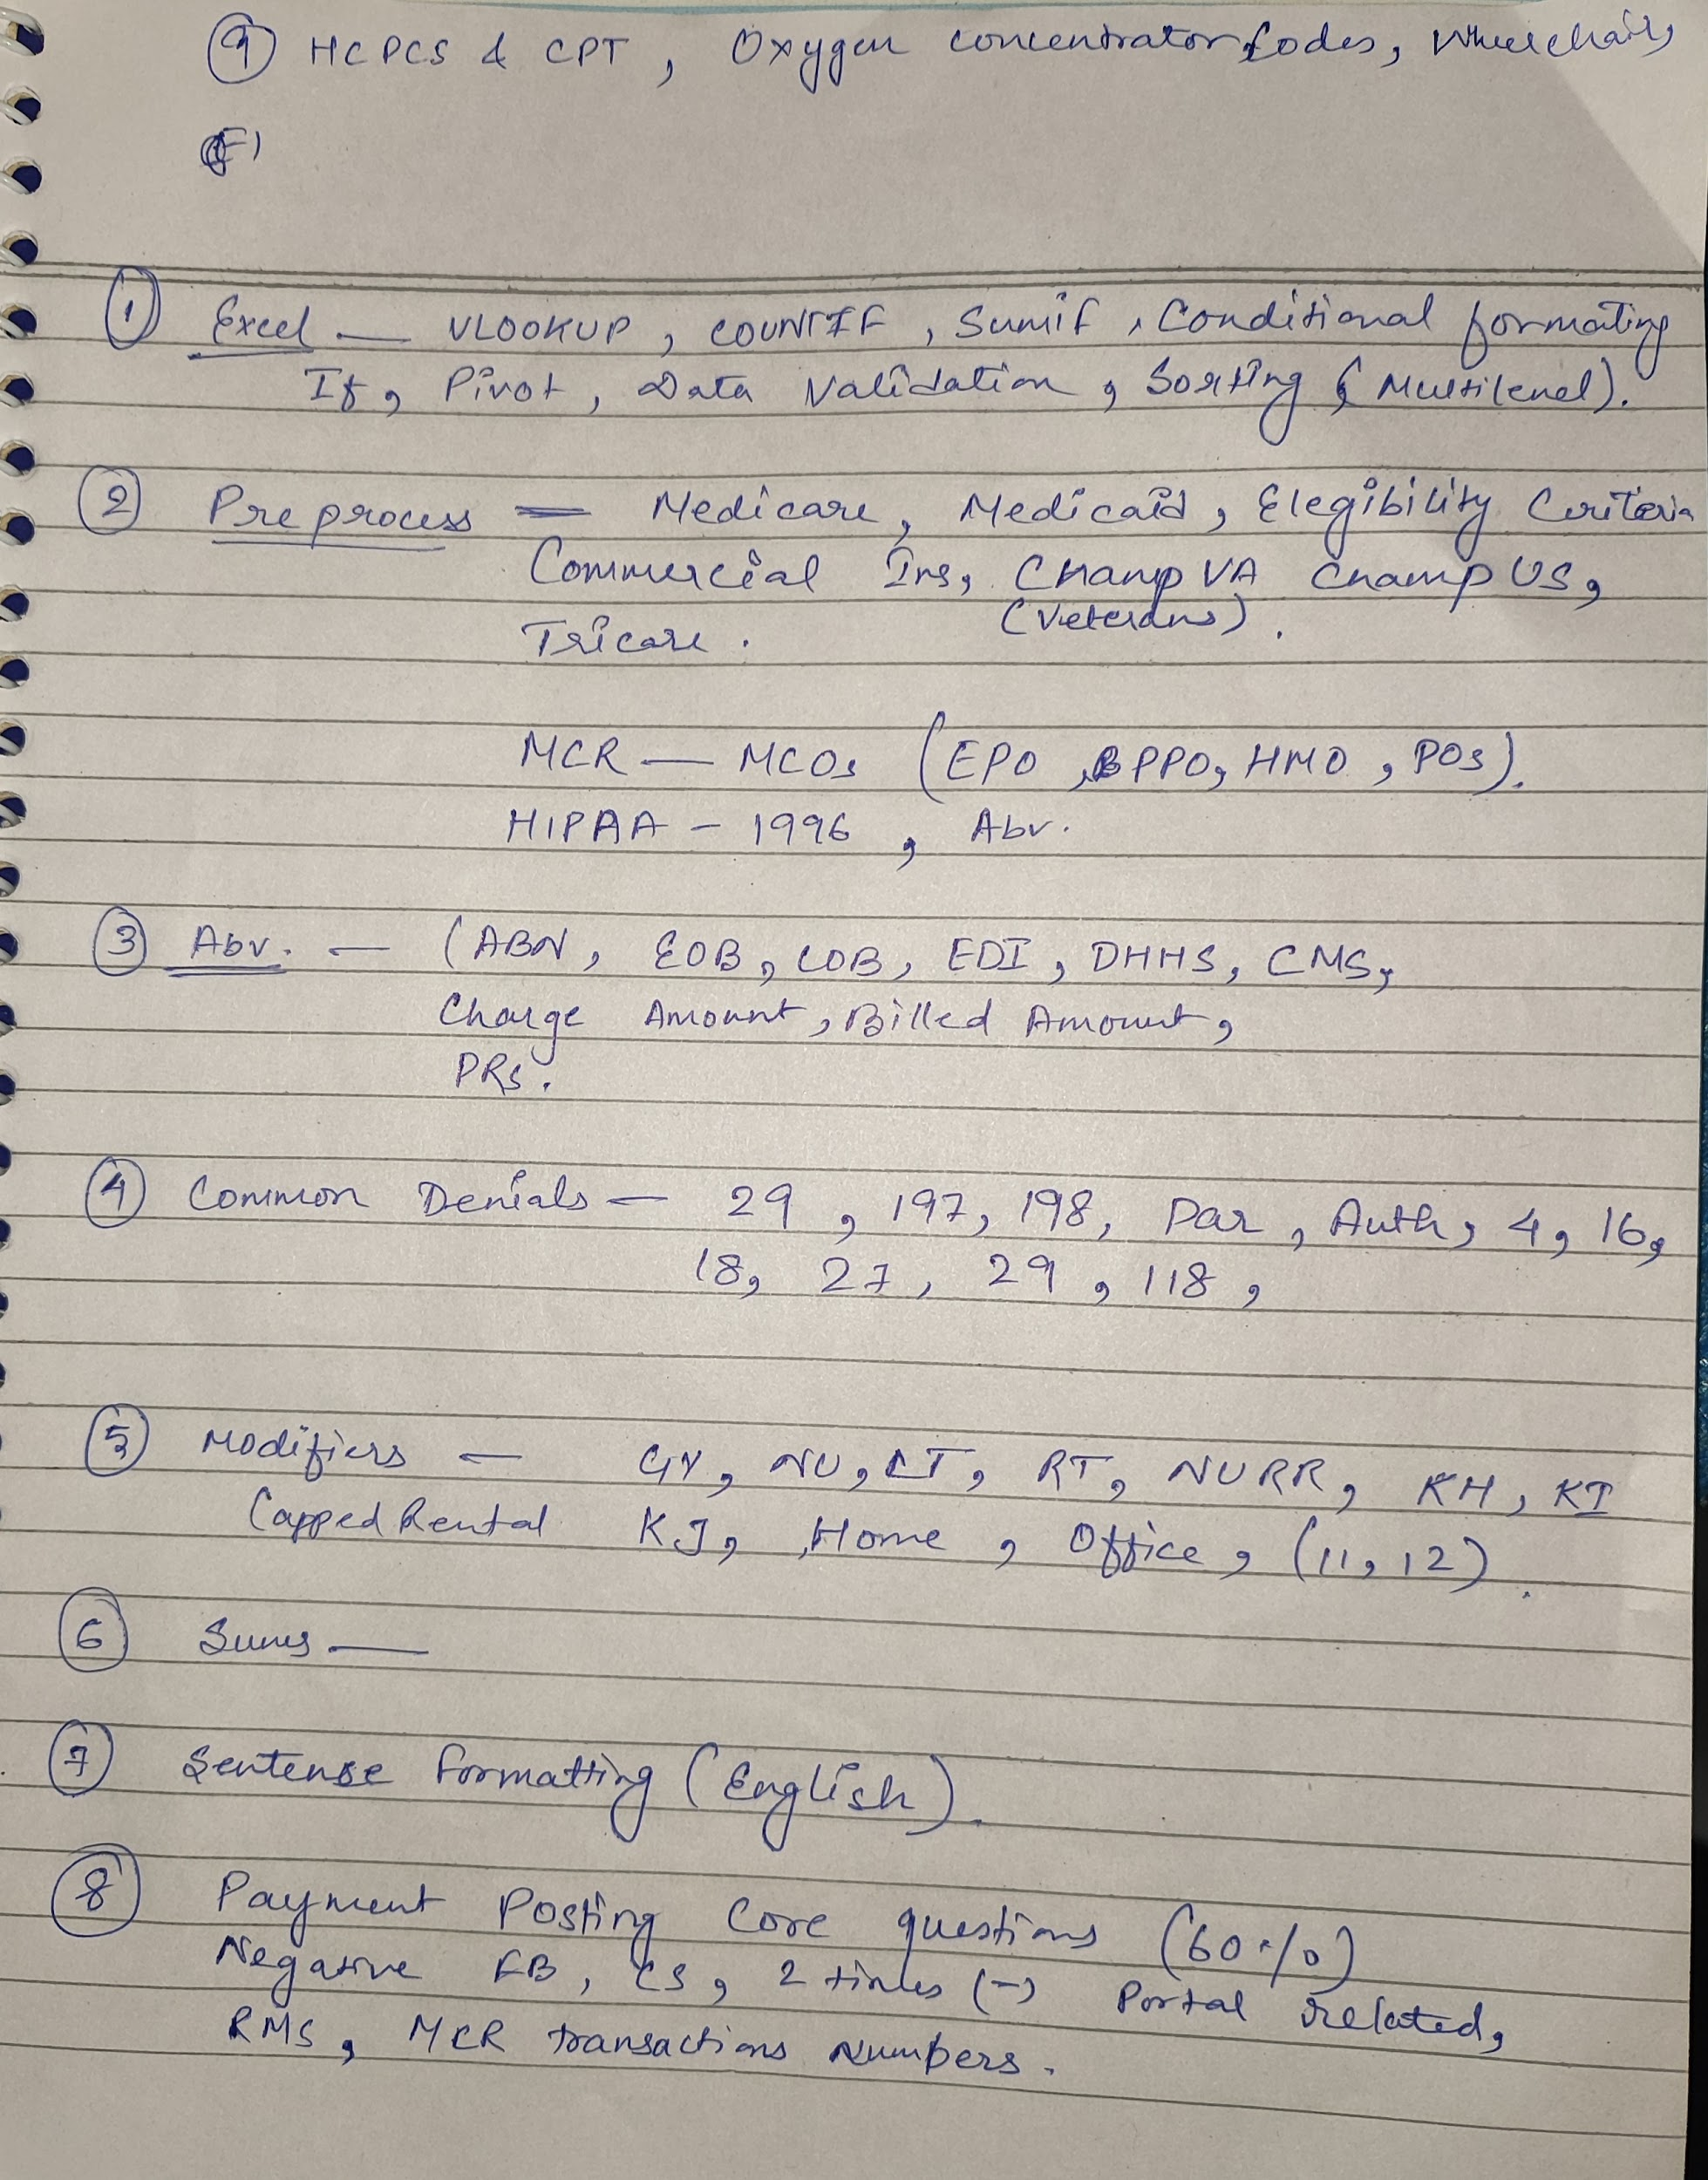 (9) HCPCS & CPT, Oxygen concentrator codes, Wheelchairs
(1) Excel — VLOOKUP, COUNTIF, Sumif, Conditional formating
If, Pivot, Data Validation, Sorting (Multilevel).
(2) Preprocess — Medicare, Medicaid, Elegibility Criteria
Commercial Ins, Champ VA Champ US,
(Veterans).
Tricare.
MCR — MCOs (EPO, PPO, HMO, POS).
HIPAA - 1996, Abv.
(3) Abv. — (ABN, EOB, COB, EDI, DHHS, CMS,
Charge Amount, Billed Amount,
PRs.
(4) Common Denials — 29, 197, 198, Par, Auth, 4, 16,
18, 27, 29, 118,
(5) Modifiers — GY, NU, LT, RT, NURR, KH, KI
Capped Rental KJ, Home, Office, (11, 12).
(6) Sums —
(7) Sentense formatting (English).
(8) Payment Posting Core questions (60%)
Negative FB, CS, 2 times (-) Portal related,
RMS, MCR transactions Numbers.